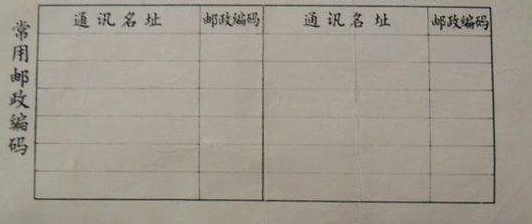 常用邮政编码
通讯名址 邮政编码 通讯名址 邮政编码